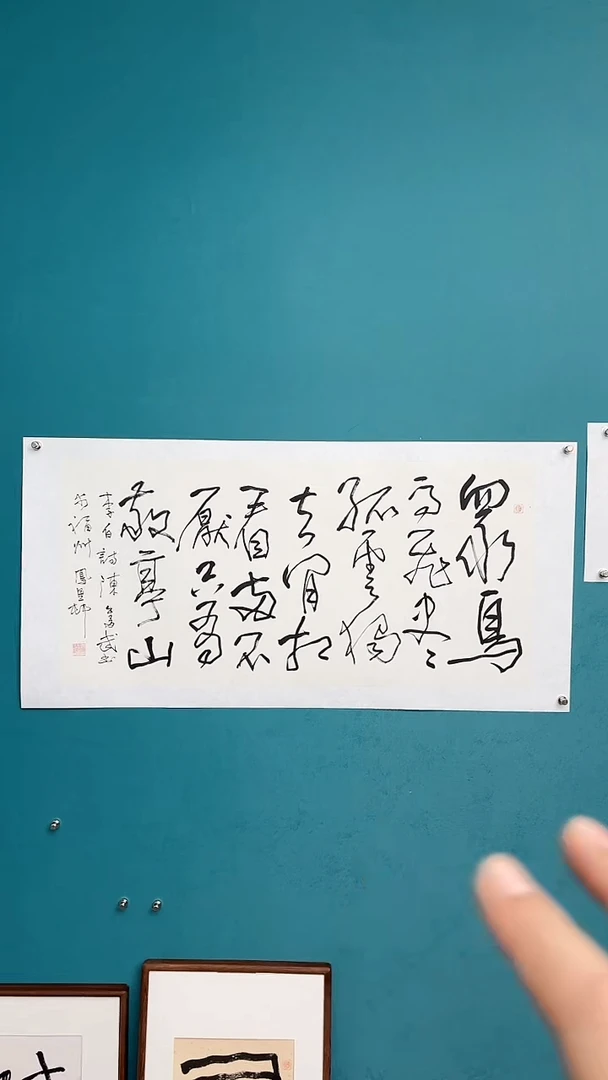 眾鳥
高飛盡
孤雲獨
去閒相
看兩不
厭只有
敬亭山
李白詩陳武書
於福州鳳